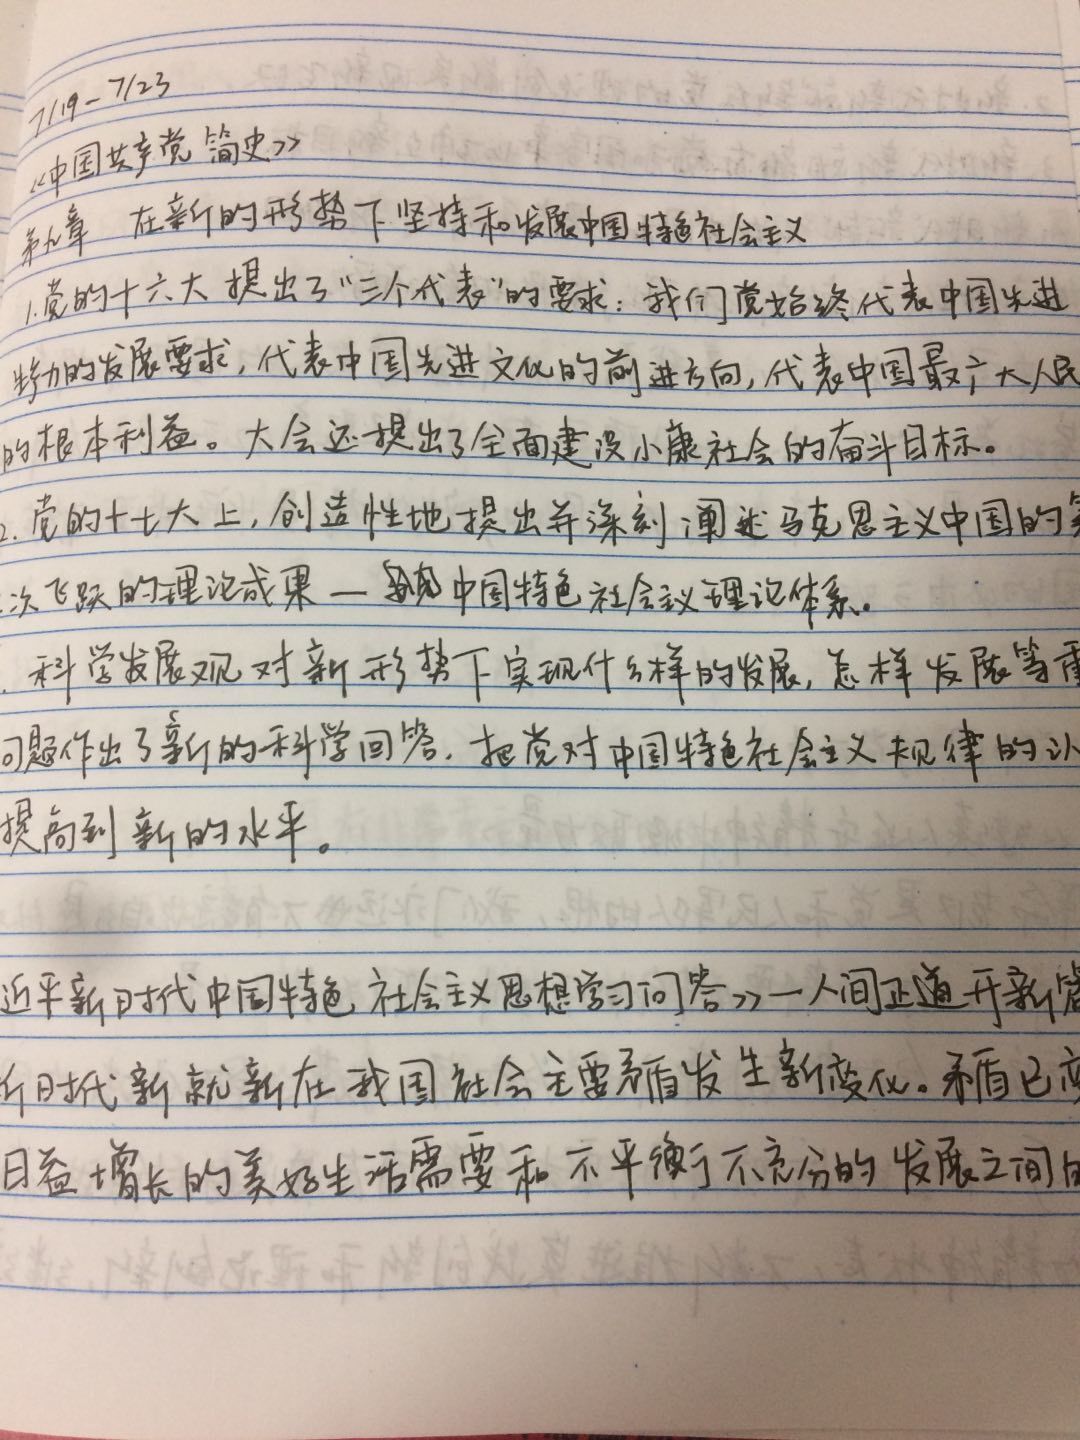 7/19-7/23
《中国共产党简史》
第九章 在新的形势下坚持和发展中国特色社会主义
1.党的十六大提出了“三个代表”的要求：我们党始终代表中国先进
生产力的发展要求，代表中国先进文化的前进方向，代表中国最广大人民
的根本利益。大会还提出了全面建设小康社会的奋斗目标。
2.党的十七大上，创造性地提出并深刻阐述马克思主义中国的
次飞跃的理论成果—中国特色社会主义理论体系。
科学发展观对新形势下实现什么样的发展，怎样发展等重
问题作出了新的科学回答.把党对中国特色社会主义规律的认
提高到新的水平。
近平新时代中国特色社会主义思想学习问答》—人间正道开新篇
新时代新就新在我国社会主要矛盾发生新变化。矛盾已变
日益增长的美好生活需要和不平衡不充分的发展之间的